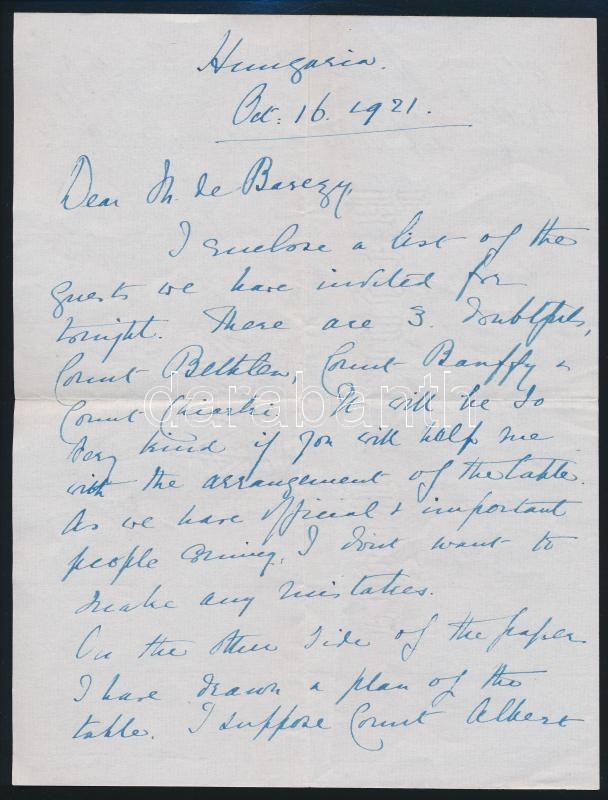 Hungaria.
Oct: 16. 1921.
Dear M. de Barczy,
I enclose a list of the
guests we have invited for
tonight. There are 3. doubtfuls,
Count Bethlen, Count Banffy &
darabanth
Count Csiraki. It will be so
very kind if you will help me
with the arrangement of the table.
As we have official & important
people coming, I dont want to
make any mistakes.
On the other side of the paper
I have drawn a plan of the
table. I suppose Count Albert